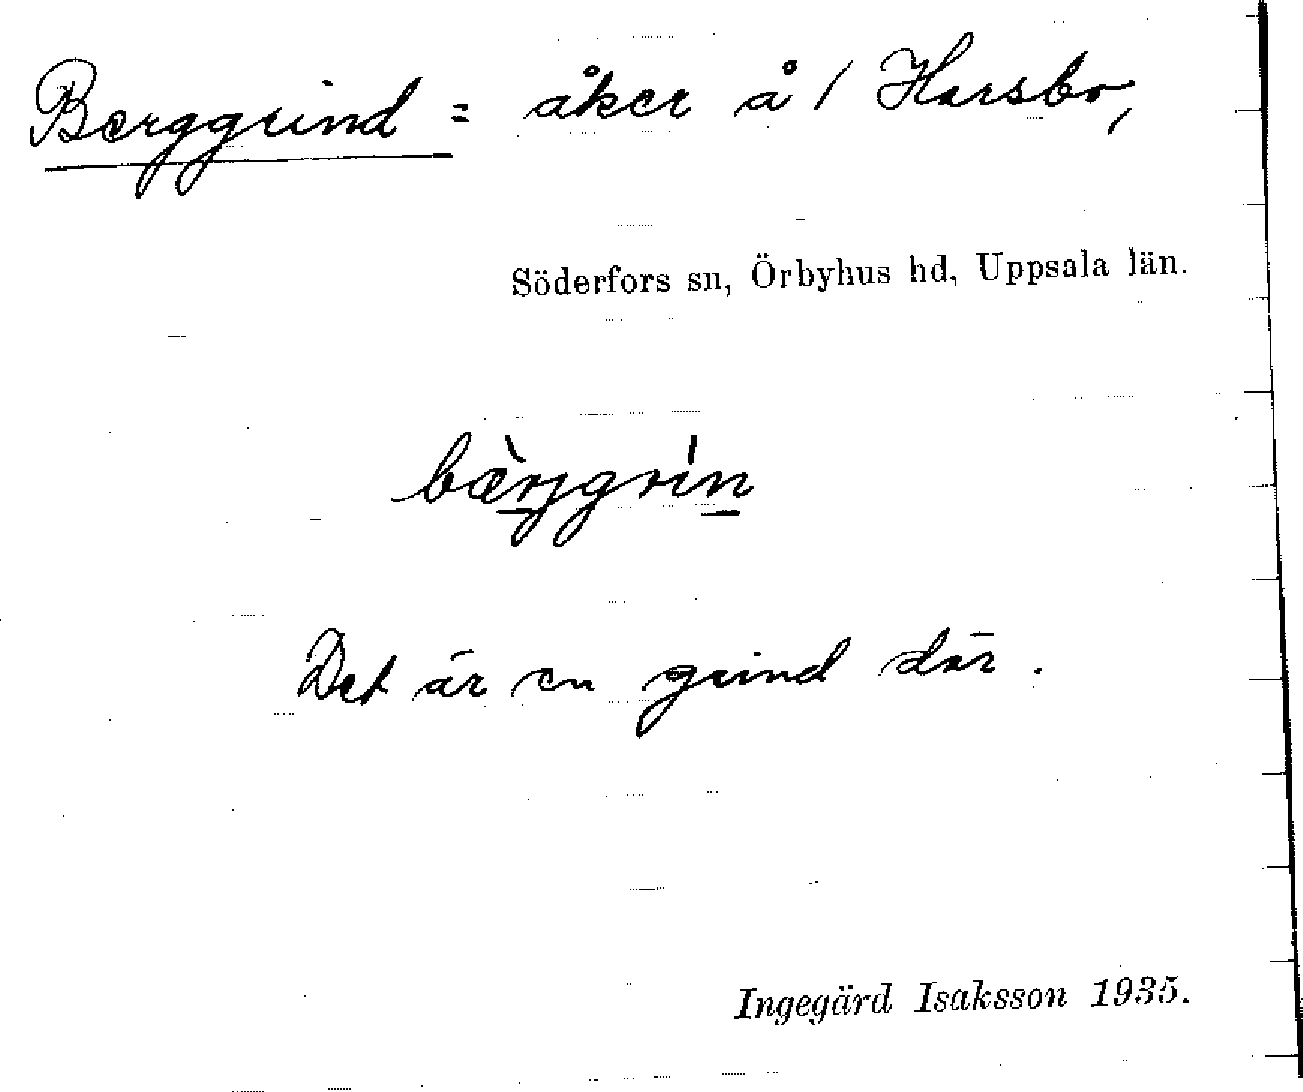 Berggrind = åker å / Harsbo,
Söderfors sn, Örbyhus hd, Uppsala län.
bæ̀rjgrín
Det är en grind där.
Ingegärd Isaksson 1935.